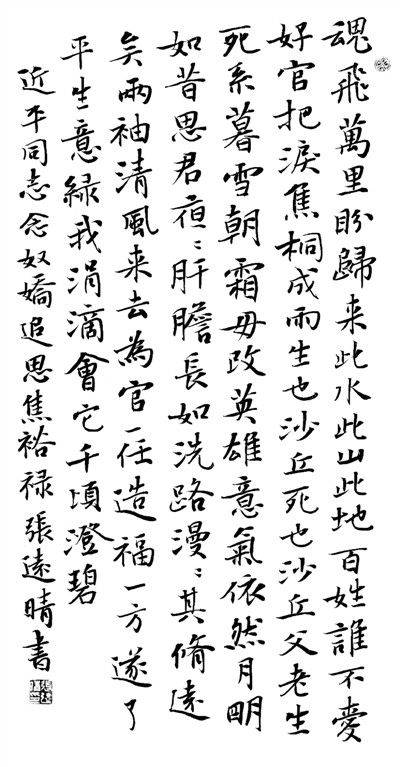 魂飛萬里盼歸来此水此山此地百姓誰不愛
好官把淚焦桐成雨生也沙丘死也沙丘父老生
死系暮雪朝霜毋改英雄意氣依然月明
如昔思君夜〻肝膽長如洗路漫〻其脩遠
矣兩袖清風来去為官一任造福一方遂了
平生意緑我涓滴會它千頃澄碧
近平同志念奴嬌追思焦裕禄張遠晴書